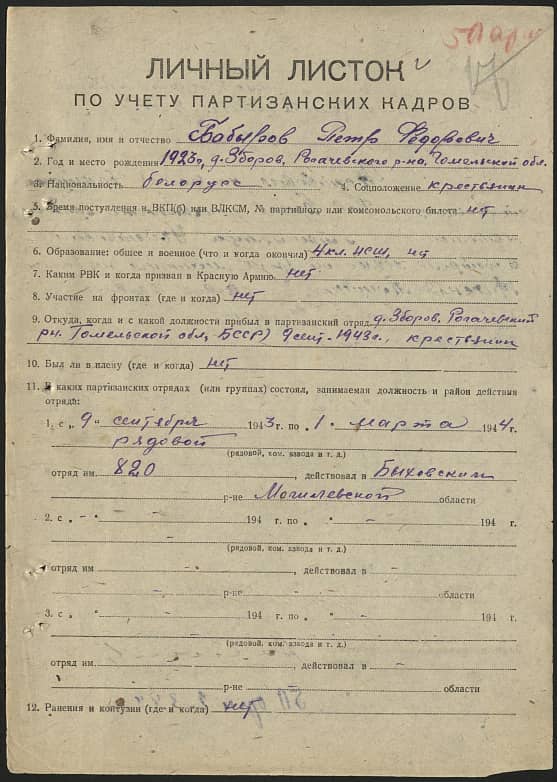 50 арм
ЛИЧНЫЙ ЛИСТОК
ПО УЧЕТУ ПАРТИЗАНСКИХ КАДРОВ
1. Фамилия, имя и отчество Бабыров Петр Федорович
2. Год и место рождения 1923г, д. Зборов, Рогачевского р-на, Гомельской обл.
3. Национальность белорус 4. Соцположение крестьянин
5. Время поступления в ВКП(б) или ВЛКСМ, № партийного или комсомольского билета нет
6. Образование: общее и военное (что и когда окончил) 4 кл. НСШ, нет
7. Каким РВК и когда призван в Красную Армию нет
8. Участие на фронтах (где и когда) нет
9. Откуда, когда и с какой должности прибыл в партизанский отряд д. Зборов, Рогачевский
рн. Гомельской обл, БССР) 9 сент. 1943г., крестьянин
10. Был ли в плену (где и когда) нет
11. В каких партизанских отрядах (или группах) состоял, занимаемая должность и район действия
отряда:
1. с „ 9 " сентября 1943 г. по „ 1 . марта 1944 г.
рядовой
(рядовой, ком. взвода и т. д.)
отряд им. 820 , действовал в Быховском
р-не Могилевской области
2. с „ - " - 194 г. по " " - 194 г.
(рядовой, ком. взвода и т. д.)
отряд им - , действовал в -
р-не - области
3. с „ " - 194 г. по " " - 194 г.
(рядовой, ком. взвода и т. д.)
отряд им. - , действовал в -
р-не - области
12. Ранения и контузии (где и когда) нет